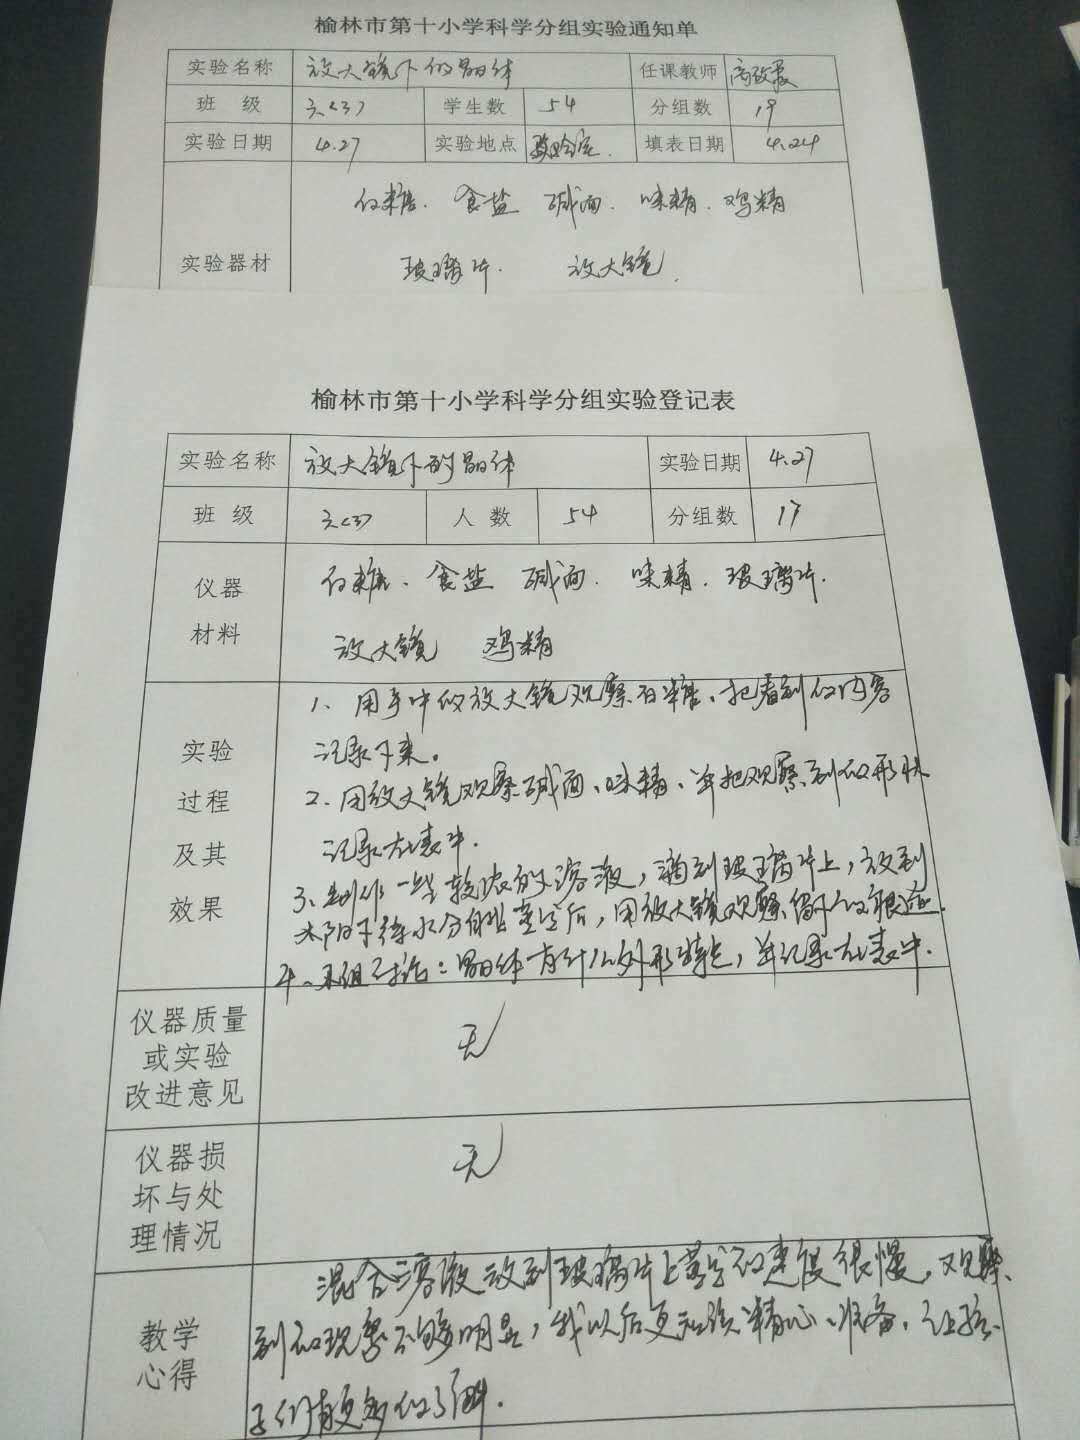 榆林市第十小学科学分组实验通知单
实验名称 放大镜下的晶体 任课教师
班 级 六<3> 学生数 54 分组数
实验日期 4.27 实验地点 实验室 填表日期 4.24
白糖、食盐 碱面、味精、鸡精
实验器材 玻璃片、 放大镜、
榆林市第十小学科学分组实验登记表
实验名称 放大镜下的晶体 实验日期 4.27
班 级 六<3> 人 数 54 分组数
仪器 白糖、食盐 碱面、味精、玻璃片、
材料 放大镜 鸡精
1、用手中的放大镜观察白糖、把看到的内容
实验 记录下来。
过程 2、用放大镜观察碱面、味精、并把观察到的形状
及其 记录在表中.
3、制作一些较浓的溶液,滴到玻璃片上,放到
效果 太阳下待水分自然蒸发后,用放大镜观察留下的痕迹.
4、小组讨论:晶体有什么外形特点,并记录在表中.
仪器质量
或实验 无
改进意见
仪器损
坏与处 无
理情况
混合溶液放到玻璃片上蒸发的速度很慢,观察
教学 到的现象不够明显,我以后更加要精心准备,让孩
心得 子们有更多的了解.